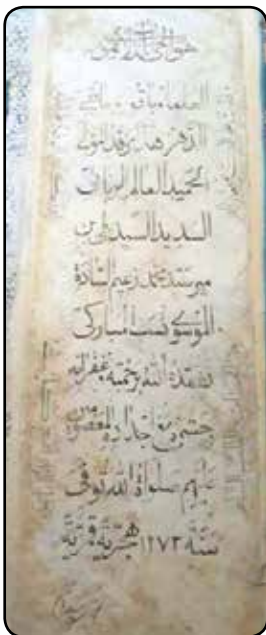 هو الحی الذی لا یموت
العلماء باقون ما بقی
الدهر هذا مرقد المولی
الحمید العالم الربانی
السدید السید علی بن
میر سید محمد زعیم السادة
الموسوی نسب المبارکی
تغمده الله برحمته غفر له
وحشره مع اجداده المعصومین
علیهم صلواة الله توفی
سنة ۱۲۷۳ هجریة قمریة